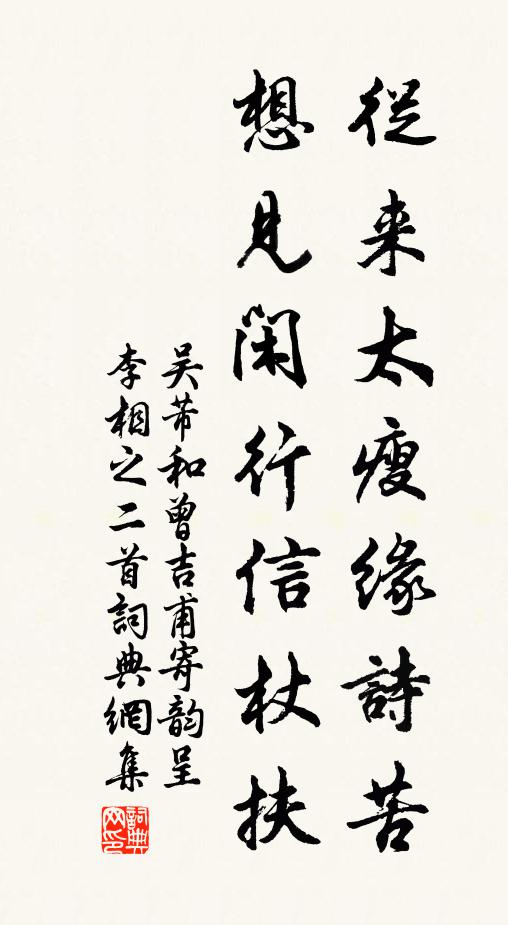 從来太瘦緣詩苦
想見閑行信杖扶
吴芾和曾吉甫寄韵呈
李相之二首詞典網集
詞典
网印